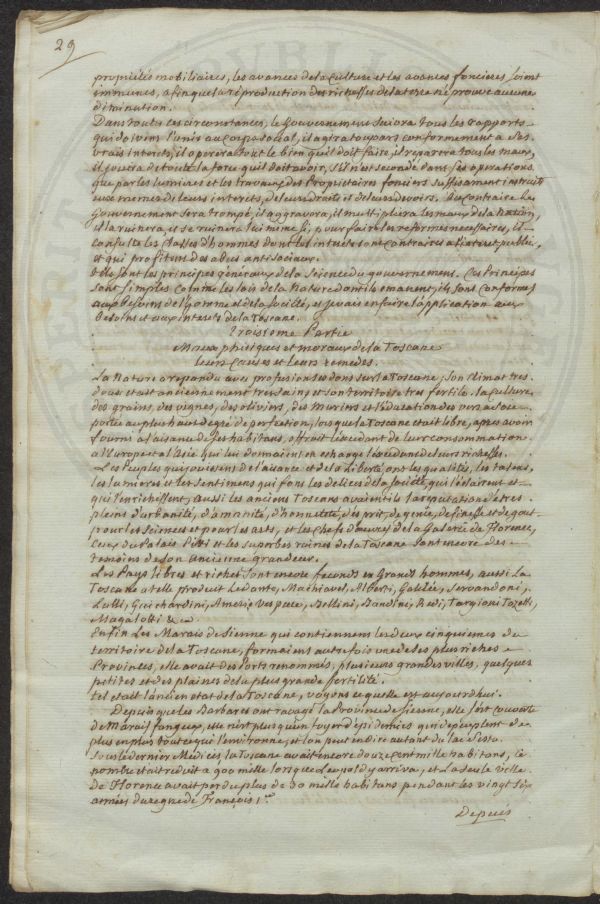 29
propriétés mobiliaires, les avances de la culture et les avances foncieres, soient
immunes, afin que la réproduction des richesses de la terre n'éprouve aucune
diminution.
Dans toutes ces circonstances, le Gouvernement suivra tous les rapports
qui doivent l'unir au Corps social, il agira toujours conformement a ses
vrais interets, il operera tout le bien qu'il doit faire, il reparera tous les maux,
il jouira de toute la force qu'il doit avoir, s'il n'est secondé dans ses operations
que par les lumieres et les travaux des Propriétaires fonciers suffisament instruits
eux memes de leurs interets, de leurs droits et de leurs devoirs. Au contraire Le
Gouvernement sera trompé, il aggravera, il multipliera les maux de la Nation,
il la ruinera, et se ruinera lui meme si, pour faire les reformes necessaires, il
consulte les Classes d'hommes dont les interets sont contraires a l'interet public,
et qui profitent des abus antisociaux.
Tels sont les principes généraux de la Science du gouvernement. Ces Principes
sont simples comme les lois de la Nature dont ils emanent, ils sont conformes
aux Besoins de l'homme et de la société, et je vais en faire l'application aux
Besoins et aux interets de la Toscane.
Troisieme Partie
Maux phisiques et moraux de la Toscane
leurs Causes et leurs remedes.
La Nature a repandu avec profusion ses dons sur la Toscane; Son Climat tres
doux etait anciennement tres sain, et son territoire tres fertile. la Culture
des grains, des vignes, des oliviers, des Muriers et l'éducation des vers a soie
portée au plus haut degré de perfection, lorsque la Toscane etait libre, apres avoir
fourni a l'aisance de ses habitans, offrait l'excédant de leur consommation
a l'Europe et a l'Asie qui lui donnaient en echange l'excédant de leurs richesses.
Les Peuples qui jouissent de l'aisance et de la Liberté, ont les qualités, les talens,
les lumieres et les sentimens qui font les delices de la Société, qui l'éclairent et
qui l'enrichissent, aussi les anciens Toscans avaient ils la reputation d'etre
pleins d'urbanité, d'aménité, d'honnetteté, d'esprit, de genie, de finesse et de gout
pour les Sciences et pour les arts, et les Chefs d'œuvres de la Galerie de Florence,
Ceux du Palais Pitti et les superbes ruines de la Toscane sont encore des
temoins de son ancienne grandeur.
Les Pays libres et riches sont encore feconds en Grands hommes, aussi La
Toscane a t elle produit Le Dante, Machiavel, Alberti, Galilée, Servandoni,
Lulli, Guichardini, Americ Vespuce, Bellini, Bandini, Redi, Targioni Tozetti,
Magalotti &c.
Enfin Les Marais de Sienne qui contiennent les deux cinquiemes du
territoire de la Toscane, formaient autrefois une de ses plus riches
Provinces, elle avait des Ports renommés, plusieurs grandes villes, quelques
petites et des plaines de la plus grande fertilité.
tel etait l'ancien etat de la Toscane, voyons ce quelle est aujourdhui.
Depuis que les Barbares ont ravagé la Province de Sienne, elle s'est couverte
de Marais fangeux, elle n'est plus qu'un foyer d'épidemies qui depeuplent de
plus en plus tout ce qui l'environne, et l'on peut en dire autant du lac
Sous le dernier Medicis la Toscane avait encore douze Cent mille habitans, Ce
nombre etait reduit a 900 mille lorsque Leopold y arriva, et La seule ville
de Florence avait perdu plus de 30 mille habitans pendant les vingt six
années du regne de François 1er
Depuis